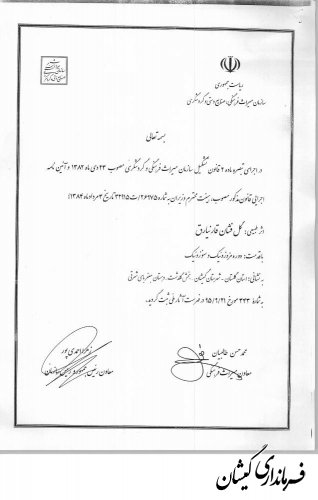 ریاست جمهوری
سازمان میراث فرهنگی، صنایع دستی و گردشگری
بسمه تعالی
در اجرای تبصره ماده ۲ قانون تشکیل سازمان میراث فرهنگی و گردشگری مصوب ۲۳ دی ماه ۱۳۸۲ و آئین نامه
اجرایی قانون مذکور مصوب هیئت محترم وزیران به شماره ۳۲۲۱۵ت/۲۶۹۷۵ تاریخ ۴ مرداد ماه ۱۳۸۴؛
اثر طبیعی: گل فشان قارنیارق
با قدمت: دوره مزوزوئیک و سنوزوئیک
به نشانی: استان گلستان - شهرستان گمیشان - بخش گلدشت - دهستان جعفربای شرقی
به شماره ۴۳۳ مورخ ۹۵/۶/۲۱ در فهرست آثار ملی ثبت گردید.
محمد حسن طالبیان
معاون میراث فرهنگی
زهرا احمدی پور
معاون رئیس جمهور و رئیس سازمان
فرمانداری گمیشان